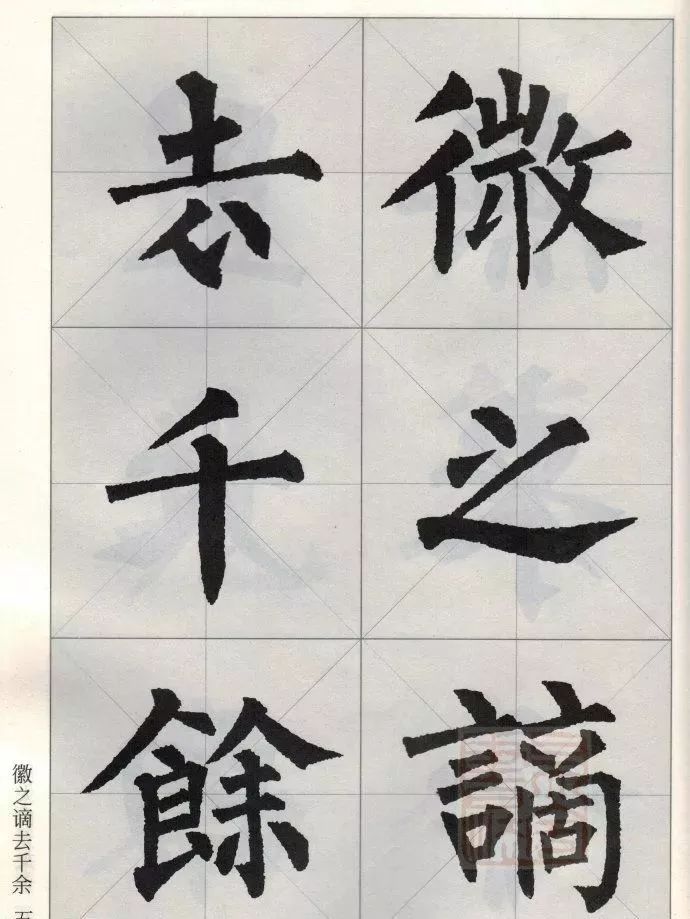 微之謫
去千餘
徽之谪去千余